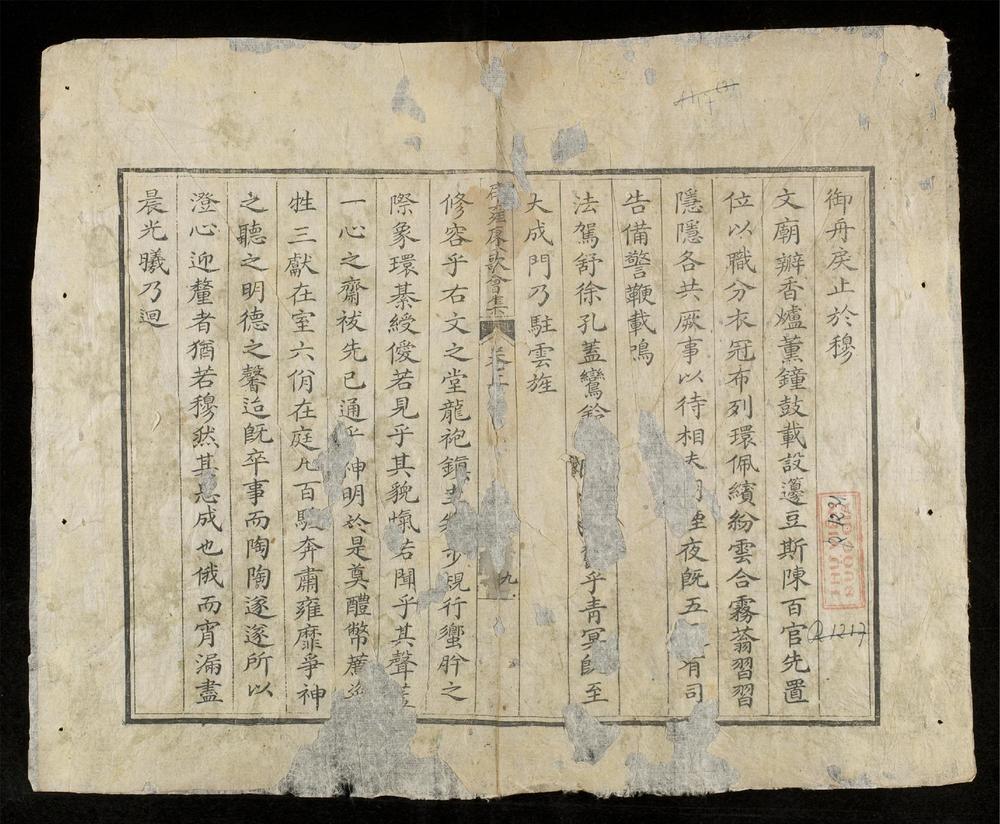 御舟戾止於穆
文廟辦香爐薰鐘鼓載設籩豆斯陳百官先置
位以職分衣冠布列環佩繽紛雲合霧蓊習習
隱隱各共厥事以待相夫 夜既五 有司
告備警鞭載鳴
法駕舒徐孔蓋鸞鈴 乎青冥即至
大成門乃駐雲旌
賡歌會集 卷 九
修容乎右文之堂龍袍鎮圭 步規行蠁肸之
際象環綦綬僾若見乎其貌愾若聞乎其聲
一心之齋祓先已通乎神明於是奠醴幣薦
牲三獻在室六佾在庭凡百駿奔肅雍靡爭神
之聽之明德之馨迨既卒事而陶陶遂遂所以
澄心迎釐者猶若穆然其思成也俄而宵漏盡
晨光曦乃迴
R.1217